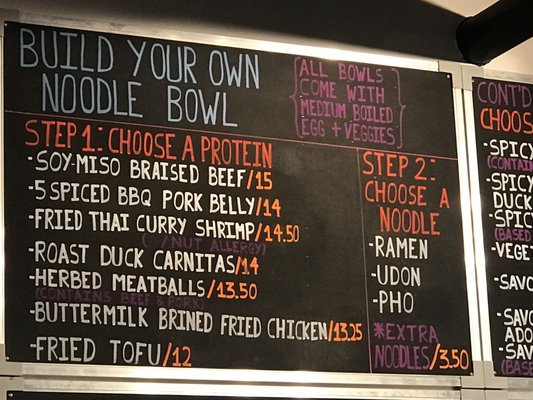 BUILD YOUR OWN
NOODLE BOWL
{ALL BOWLS
COME WITH
MEDIUM BOILED
EGG + VEGGIES}
STEP 1: CHOOSE A PROTEIN
-SOY-MISO BRAISED BEEF/15
-5 SPICED BBQ PORK BELLY/14
-FRIED THAI CURRY SHRIMP/14.50
( /NUT ALLERGY)
-ROAST DUCK CARNITAS/14
-HERBED MEATBALLS/13.50
(CONTAINS BEEF & PORK)
-BUTTERMILK BRINED FRIED CHICKEN/13.25
-FRIED TOFU/12
STEP 2:
CHOOSE A
NOODLE
-RAMEN
-UDON
-PHO
*EXTRA
NOODLES/3.50
CONT'D
CHOOS
-SPICY
(CONTAIN
-SPICY
DUCK
-SPICY
(BASED
-VEGE
-SAVO
-SAVO
ADO
-SAV
(BASE